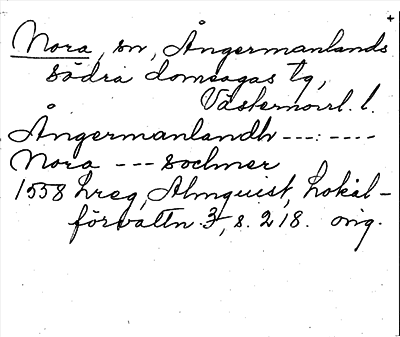 +
Nora, sn, Ångermanlands
södra domsagas tg,
Västernorrl. l.
Ångermanlandh ---:----
Nora --- sochner
1558 hreg, Almquist, Lokal-
förvaltn. 3, s. 218. orig.